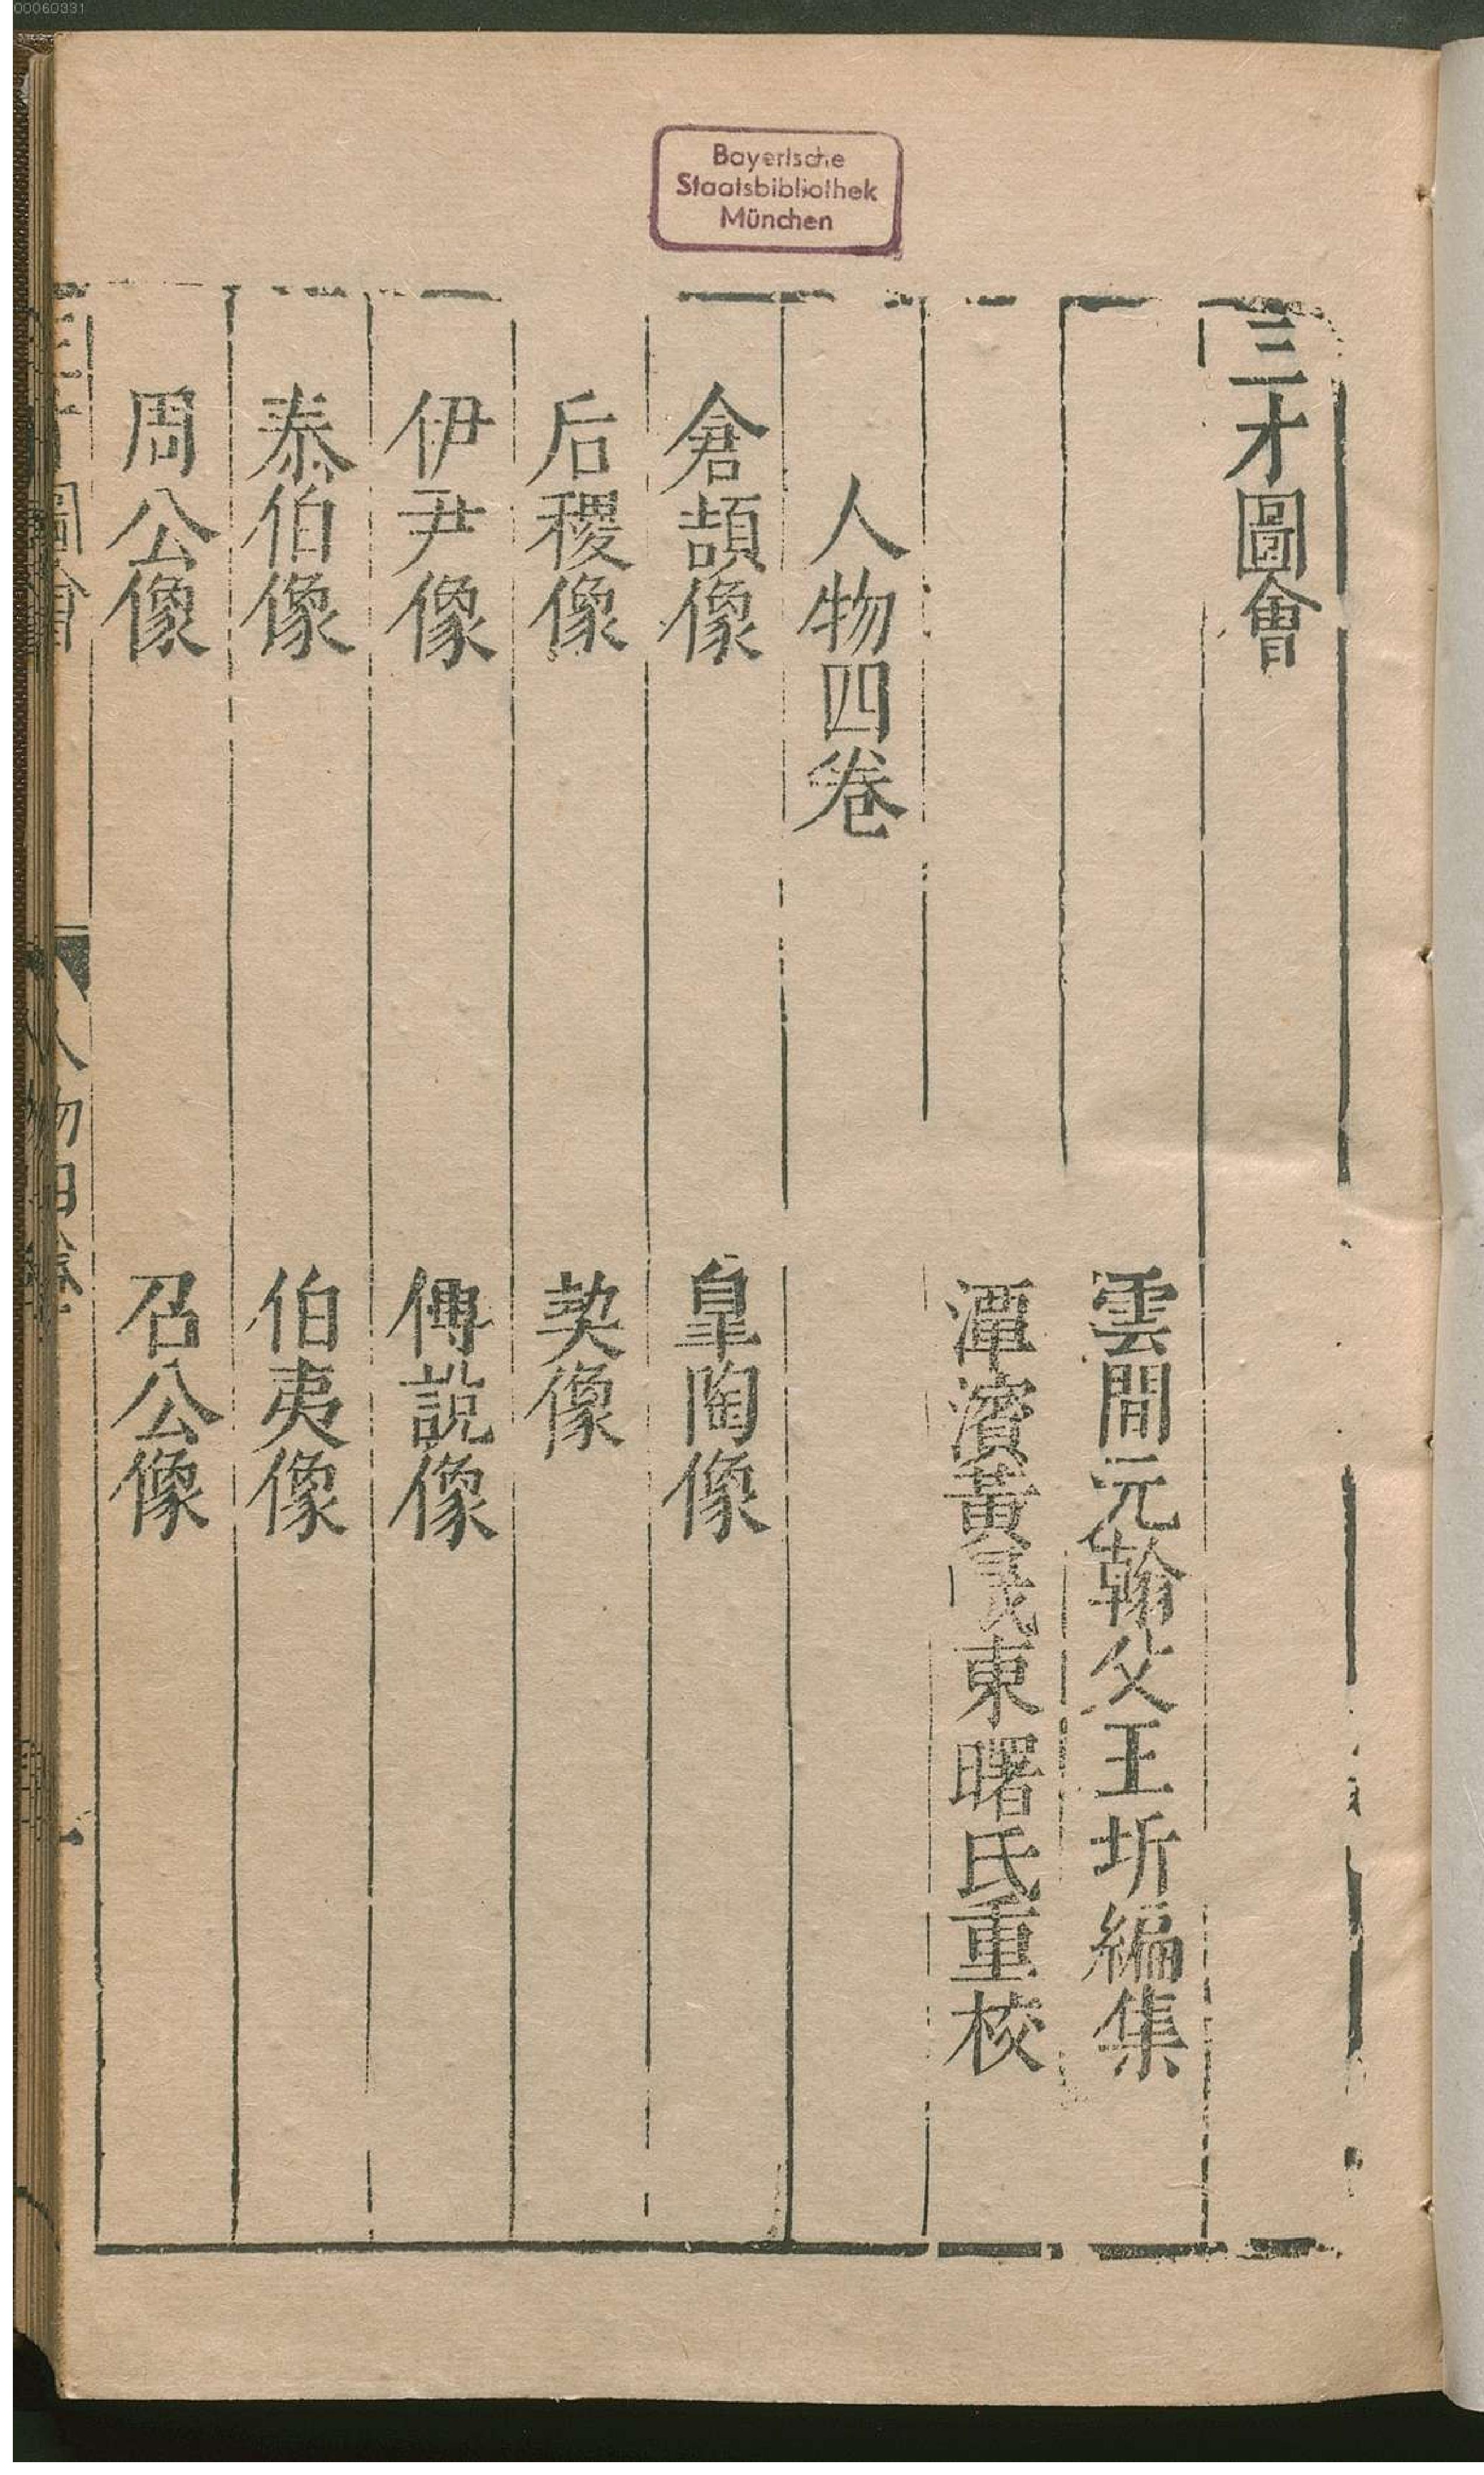 00060331
Bayerische
Staatsbibliothek
München
三才圖會
雲間元翰父王圻編集
潭濱黃晟東曙氏重校
人物四卷
倉頡像 皐陶像
后稷像 契像
伊尹像 傅說像
泰伯像 伯夷像
周公像 召公像